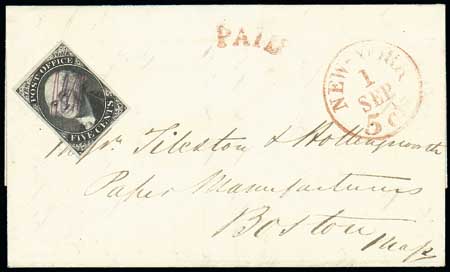 POST OFFICE
FIVE CENTS
PAID
NEW-YORK
1
SEP
5 c
Messrs Tileston & Hollingsworth
Paper Manufacturers
Boston
Mass